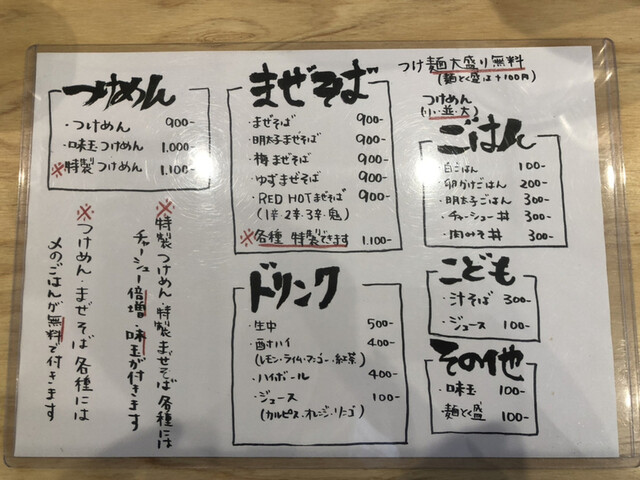 つけめん
・つけめん 900-
・味玉つけめん 1.000-
※特製つけめん 1.100-
※特製つけめん・特製まぜそば各種には
チャーシュー倍増・味玉が付きます
※つけめん・まぜそば各種には
〆のごはんが無料で付きます
まぜそば
・まぜそば 900-
・明太まぜそば 900-
・梅まぜそば 900-
・ゆずまぜそば 900-
・RED HOTまぜそば 900-
(1辛・2辛・3辛・鬼)
※各種 特製できます 1.100-
ドリンク
・生中 500-
・酎ハイ 400-
(レモン・ライム・マンゴー・紅茶)
・ハイボール 400-
・ジュース 100-
(カルピス・オレンジ・リンゴ)
つけ麺大盛り無料
(麺とく盛は+100円)
つけめん
(小・並・大)
ごはん
・白ごはん 100-
・卵かけごはん 200-
・明太ごはん 300-
・チャーシュー丼 300-
・肉みそ丼 300-
こども
・汁そば 300-
・ジュース 100-
その他
・味玉 100-
・麺とく盛 100-